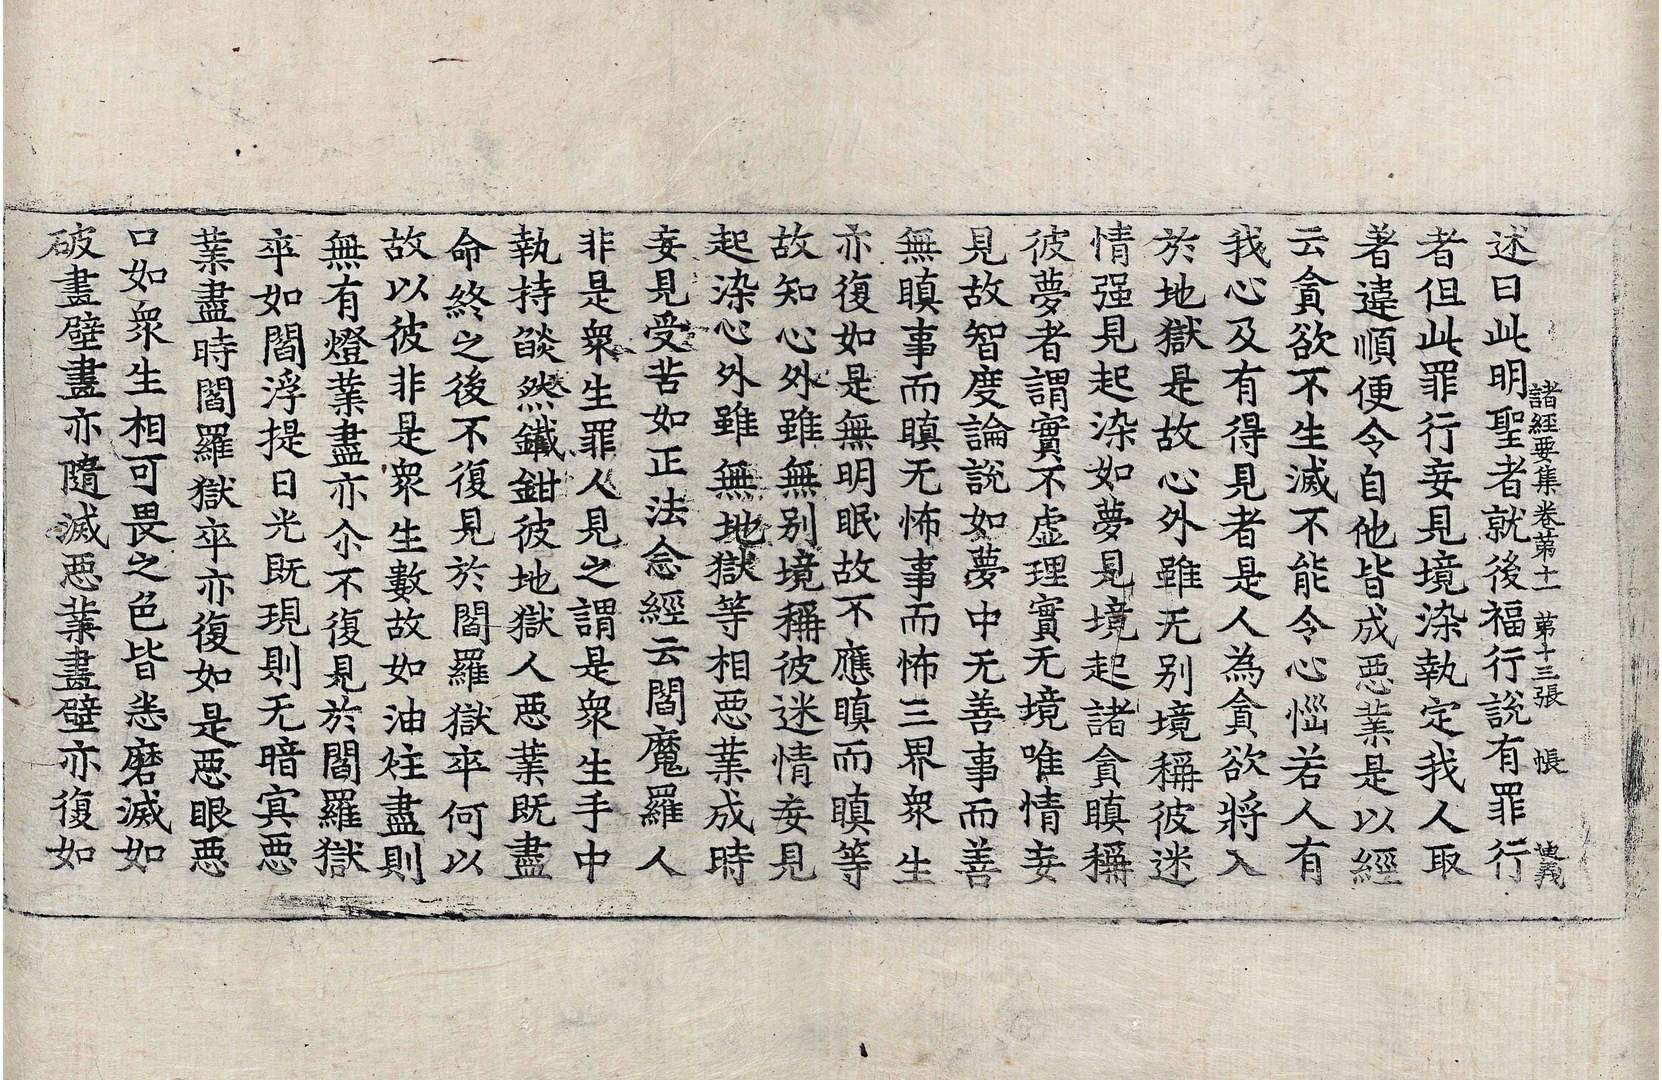 諸經要集卷第十一 第十三張 帳
述曰此明聖者就後福行説有罪行
者但此罪行妄見境染執定我人取
著違順便令自他皆成惡業是以經
云貪欲不生滅不能令心惱若人有
我心及有得見者是人為貪欲將入
於地獄是故心外雖无别境稱彼迷
情强見起染如夢見境起諸貪瞋稱
彼夢者謂實不虛理實无境唯情妄
見故智度論説如夢中无善事而善
無瞋事而瞋无怖事而怖三界衆生
亦復如是無明眠故不應瞋而瞋等
故知心外雖無别境稱彼迷情妄見
起染心外雖無地獄等相惡業成時
妄見受苦如正法念經云閻魔羅人
非是衆生罪人見之謂是衆生手中
執持㷔然鐵鉗彼地獄人惡業既盡
命終之後不復見於閻羅獄卒何以
故以彼非是衆生數故如油炷盡則
無有燈業盡亦尒不復見於閻羅獄
卒如閻浮提日光既現則无暗冥惡
業盡時閻羅獄卒亦復如是惡眼惡
口如衆生相可畏之色皆悉磨滅如
破畫壁畫亦隨滅惡業畫壁亦復如